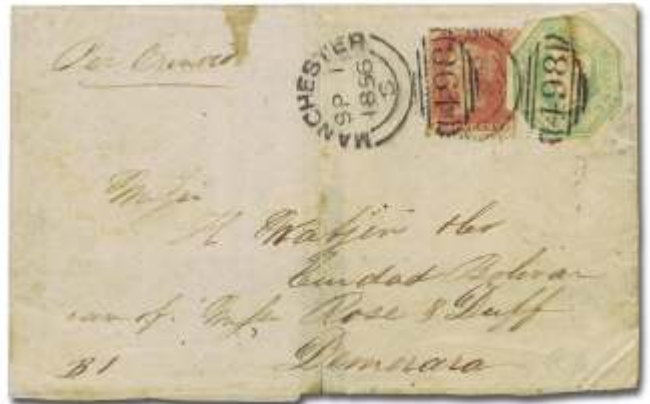 Per Orinoco
MANCHESTER
SP 1
1856
S
498
498
Messrs
H Watjen & Co
Ciudad Bolivar
care of Messrs Rose & Duff
Demerara
B1